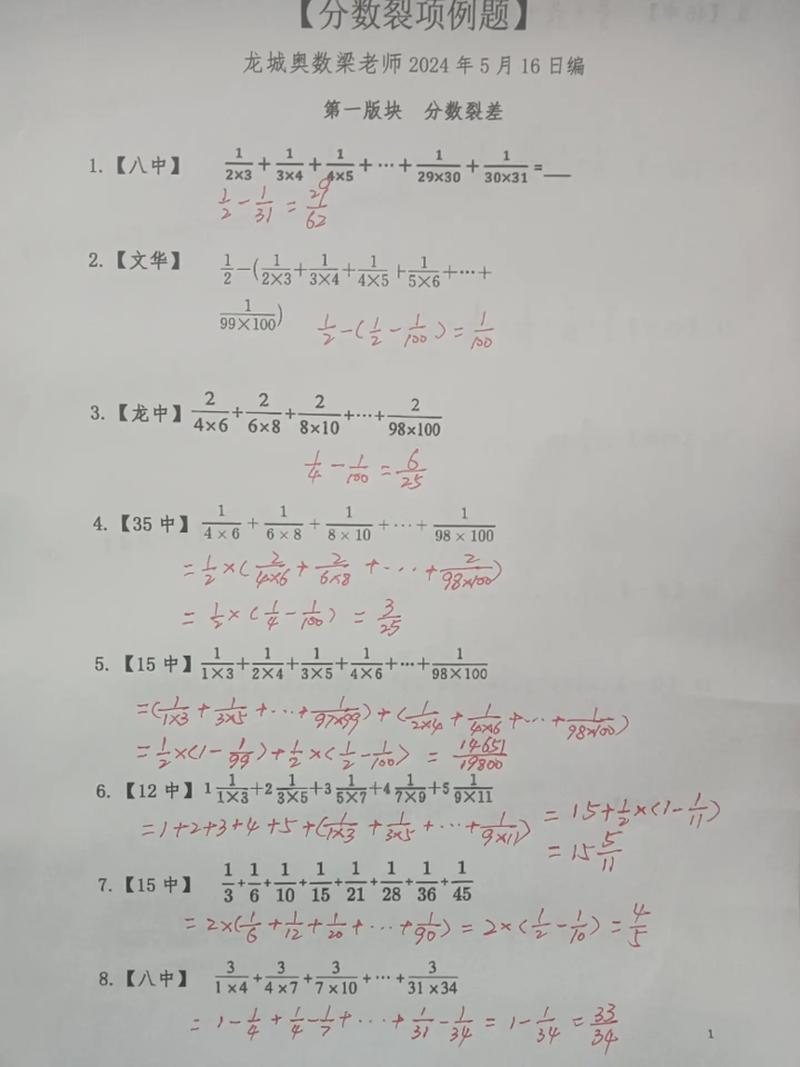 【分数裂项例题】
龙城奥数梁老师 2024 年 5 月 16 日编
第一版块 分数裂差
1.【八中】 1/2×3 + 1/3×4 + 1/4×5 + ⋯ + 1/29×30 + 1/30×31 =__
1/2 - 1/31 = 29/62
2.【文华】 1/2 -( 1/2×3 + 1/3×4 + 1/4×5 + 1/5×6 +⋯+
1/99×100 )
1/2 -( 1/2 - 1/100 ) = 1/100
3.【龙中】 2/4×6 + 2/6×8 + 2/8×10 +⋯+ 2/98×100
1/4 - 1/100 = 6/25
4.【35 中】 1/4×6 + 1/6×8 + 1/8×10 +⋯+ 1/98×100
= 1/2 ×( 2/4×6 + 2/6×8 + ⋯ + 2/98×100 )
= 1/2 ×( 1/4 - 1/100 ) = 3/25
5.【15 中】 1/1×3 + 1/2×4 + 1/3×5 + 1/4×6 +⋯+ 1/98×100
=( 1/1×3 + 1/3×5 +⋯+ 1/97×99 ) + ( 1/2×4 + 1/4×6 +⋯+ 1/98×100 )
= 1/2 ×(1- 1/99 )+ 1/2 ×( 1/2 - 1/100 ) = 14651/19800
6.【12 中】1 1/1×3 +2 1/3×5 +3 1/5×7 +4 1/7×9 +5 1/9×11
=1+2+3+4+5+( 1/1×3 + 1/3×5 +⋯+ 1/9×11 )
= 15+ 1/2 ×(1- 1/11 )
= 15 5/11
7.【15 中】 1/3 + 1/6 + 1/10 + 1/15 + 1/21 + 1/28 + 1/36 + 1/45
= 2×( 1/6 + 1/12 + 1/20 +⋯+ 1/90 ) = 2×( 1/2 - 1/10 ) = 4/5
8.【八中】 3/1×4 + 3/4×7 + 3/7×10 +⋯+ 3/31×34
= 1- 1/4 + 1/4 - 1/7 +⋯+ 1/31 - 1/34 = 1- 1/34 = 33/34
1